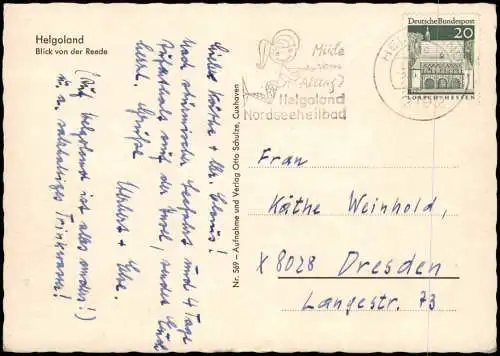 Helgoland
Blick von der Reede
Liebe Käthe + 
Nach stürmischer Seefahrt und 4 Tage
Aufenthalt auf der Insel, sendet Euch
herzl. Grüße
(Auf Helgoland ist alles anders!)
u. a. salzhaltiges Trinkwasser!
Nr. 569 – Aufnahme und Verlag Otto Schulze, Cuxhaven
Müde
vom
Alltag?
Helgoland
Nordseeheilbad
Deutsche Bundespost
20
LORSCH · HESSEN
Frau
Käthe Weinhold,
X 8028 Dresden
Langestr. 73